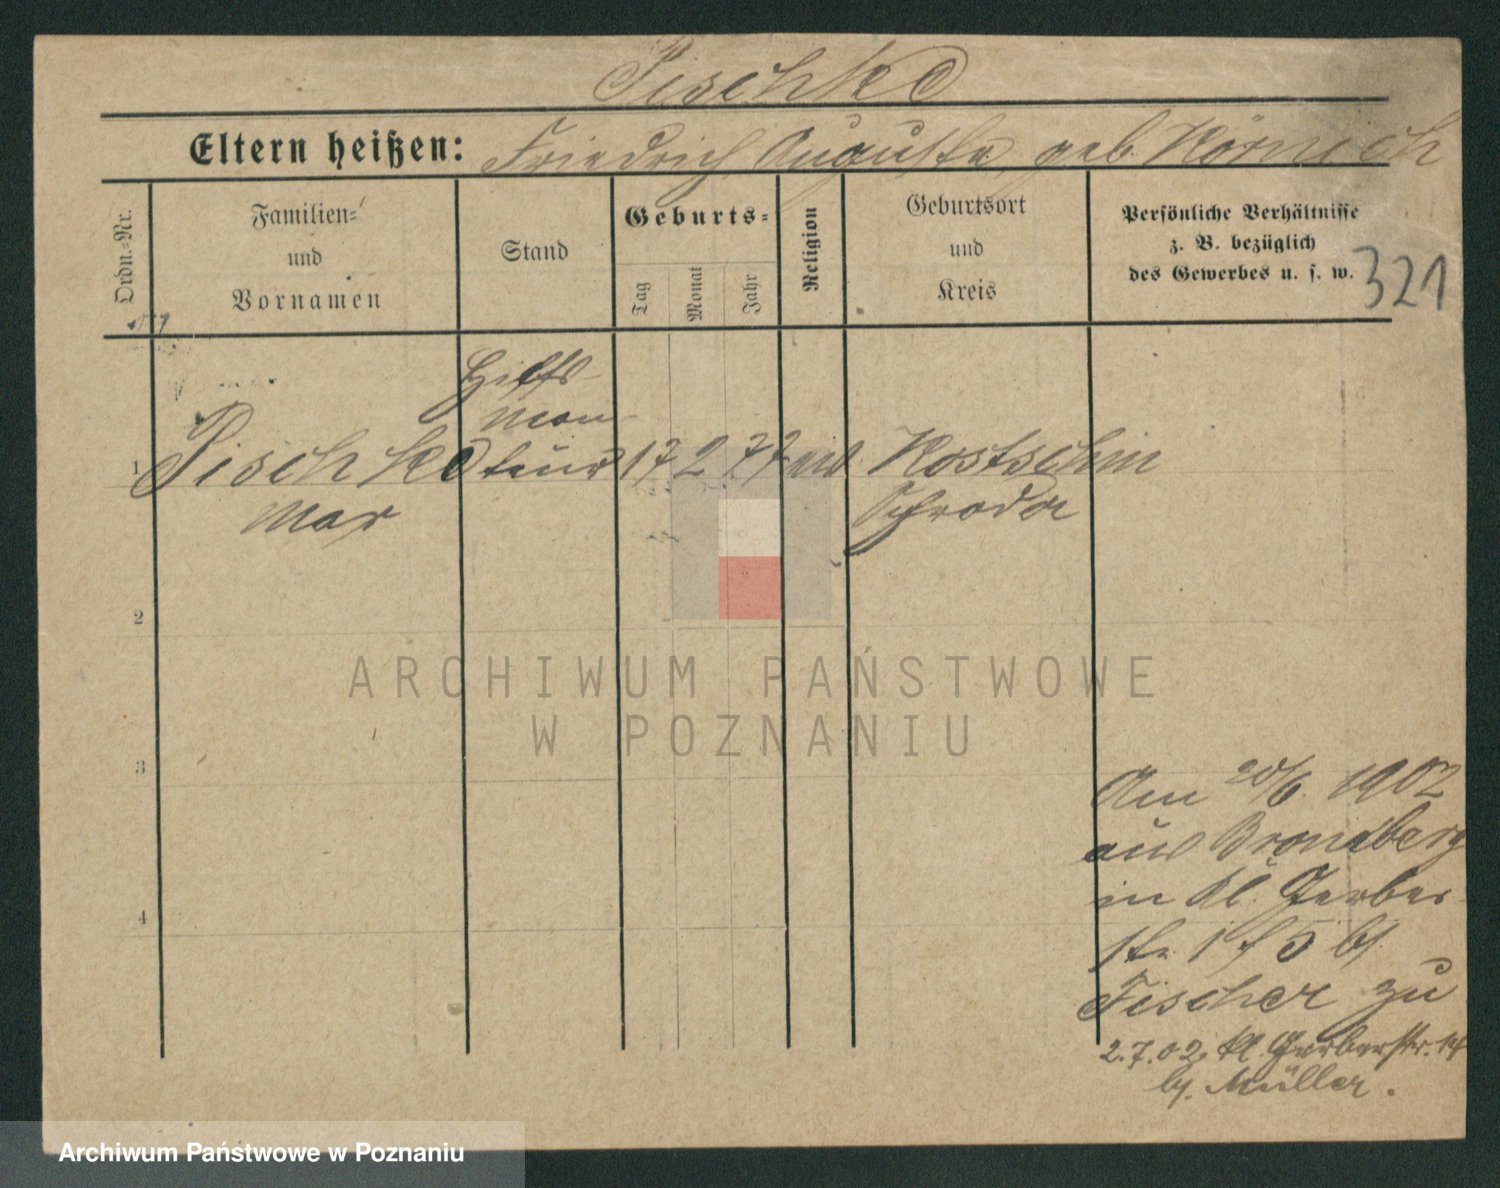 Pischke
Eltern heißen: Friedrich Auguste, geb. Körnich
Ordn.-Nr.
Familien-
und
Vornamen
Stand
Geburts-
Tag
Monat
Jahr
Religion
Geburtsort
und
Kreis
Persönliche Verhältnisse
z. B. bezüglich
des Gewerbes u. s. w.
321
Hilfs-
mon-
1 Pischke teur 17 2 77 Kostschin
Max Schroda
2
3
4
ARCHIWUM PAŃSTWOWE
W POZNANIU
Am 20/6. 1902
aus Bromberg
in Kl. Gerber-
str. 1 5 b/
Fischer zu
2.7.02. Kl. Gerberstr. 14
b/. Müller.
Archiwum Państwowe w Poznaniu